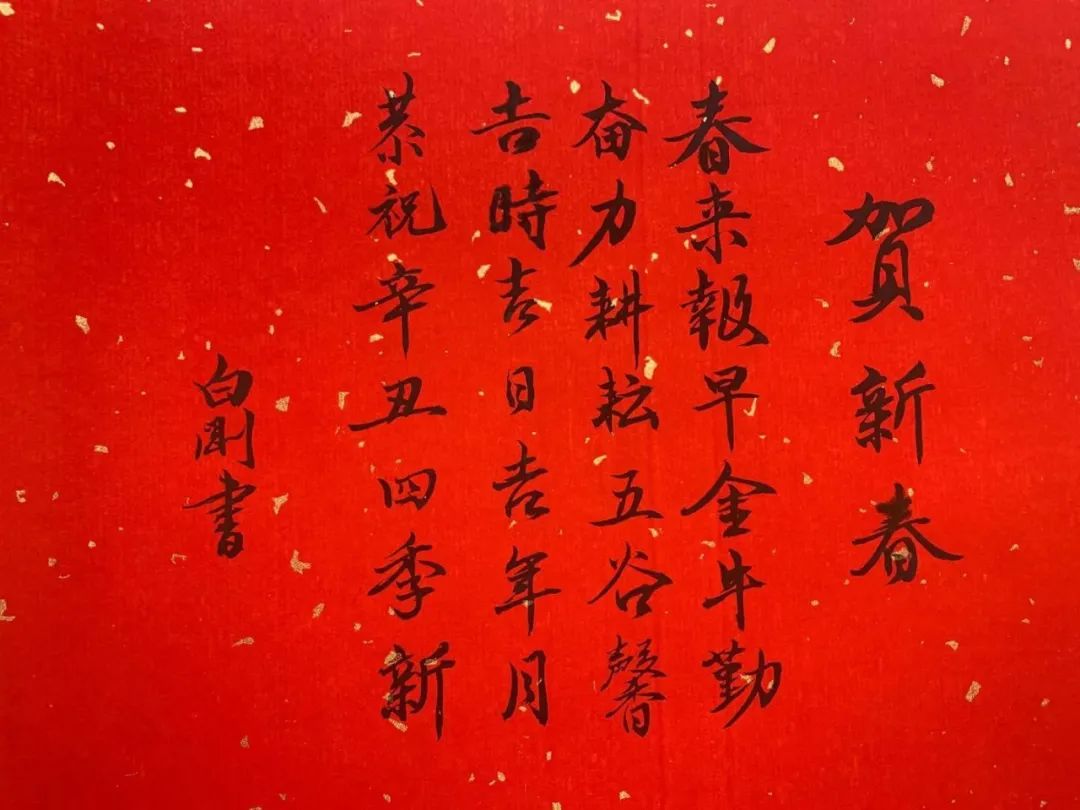 賀新春
春来報早金牛勤
奋力耕耘五谷馨
吉時吉日吉年月
恭祝辛丑四季新
白剛書